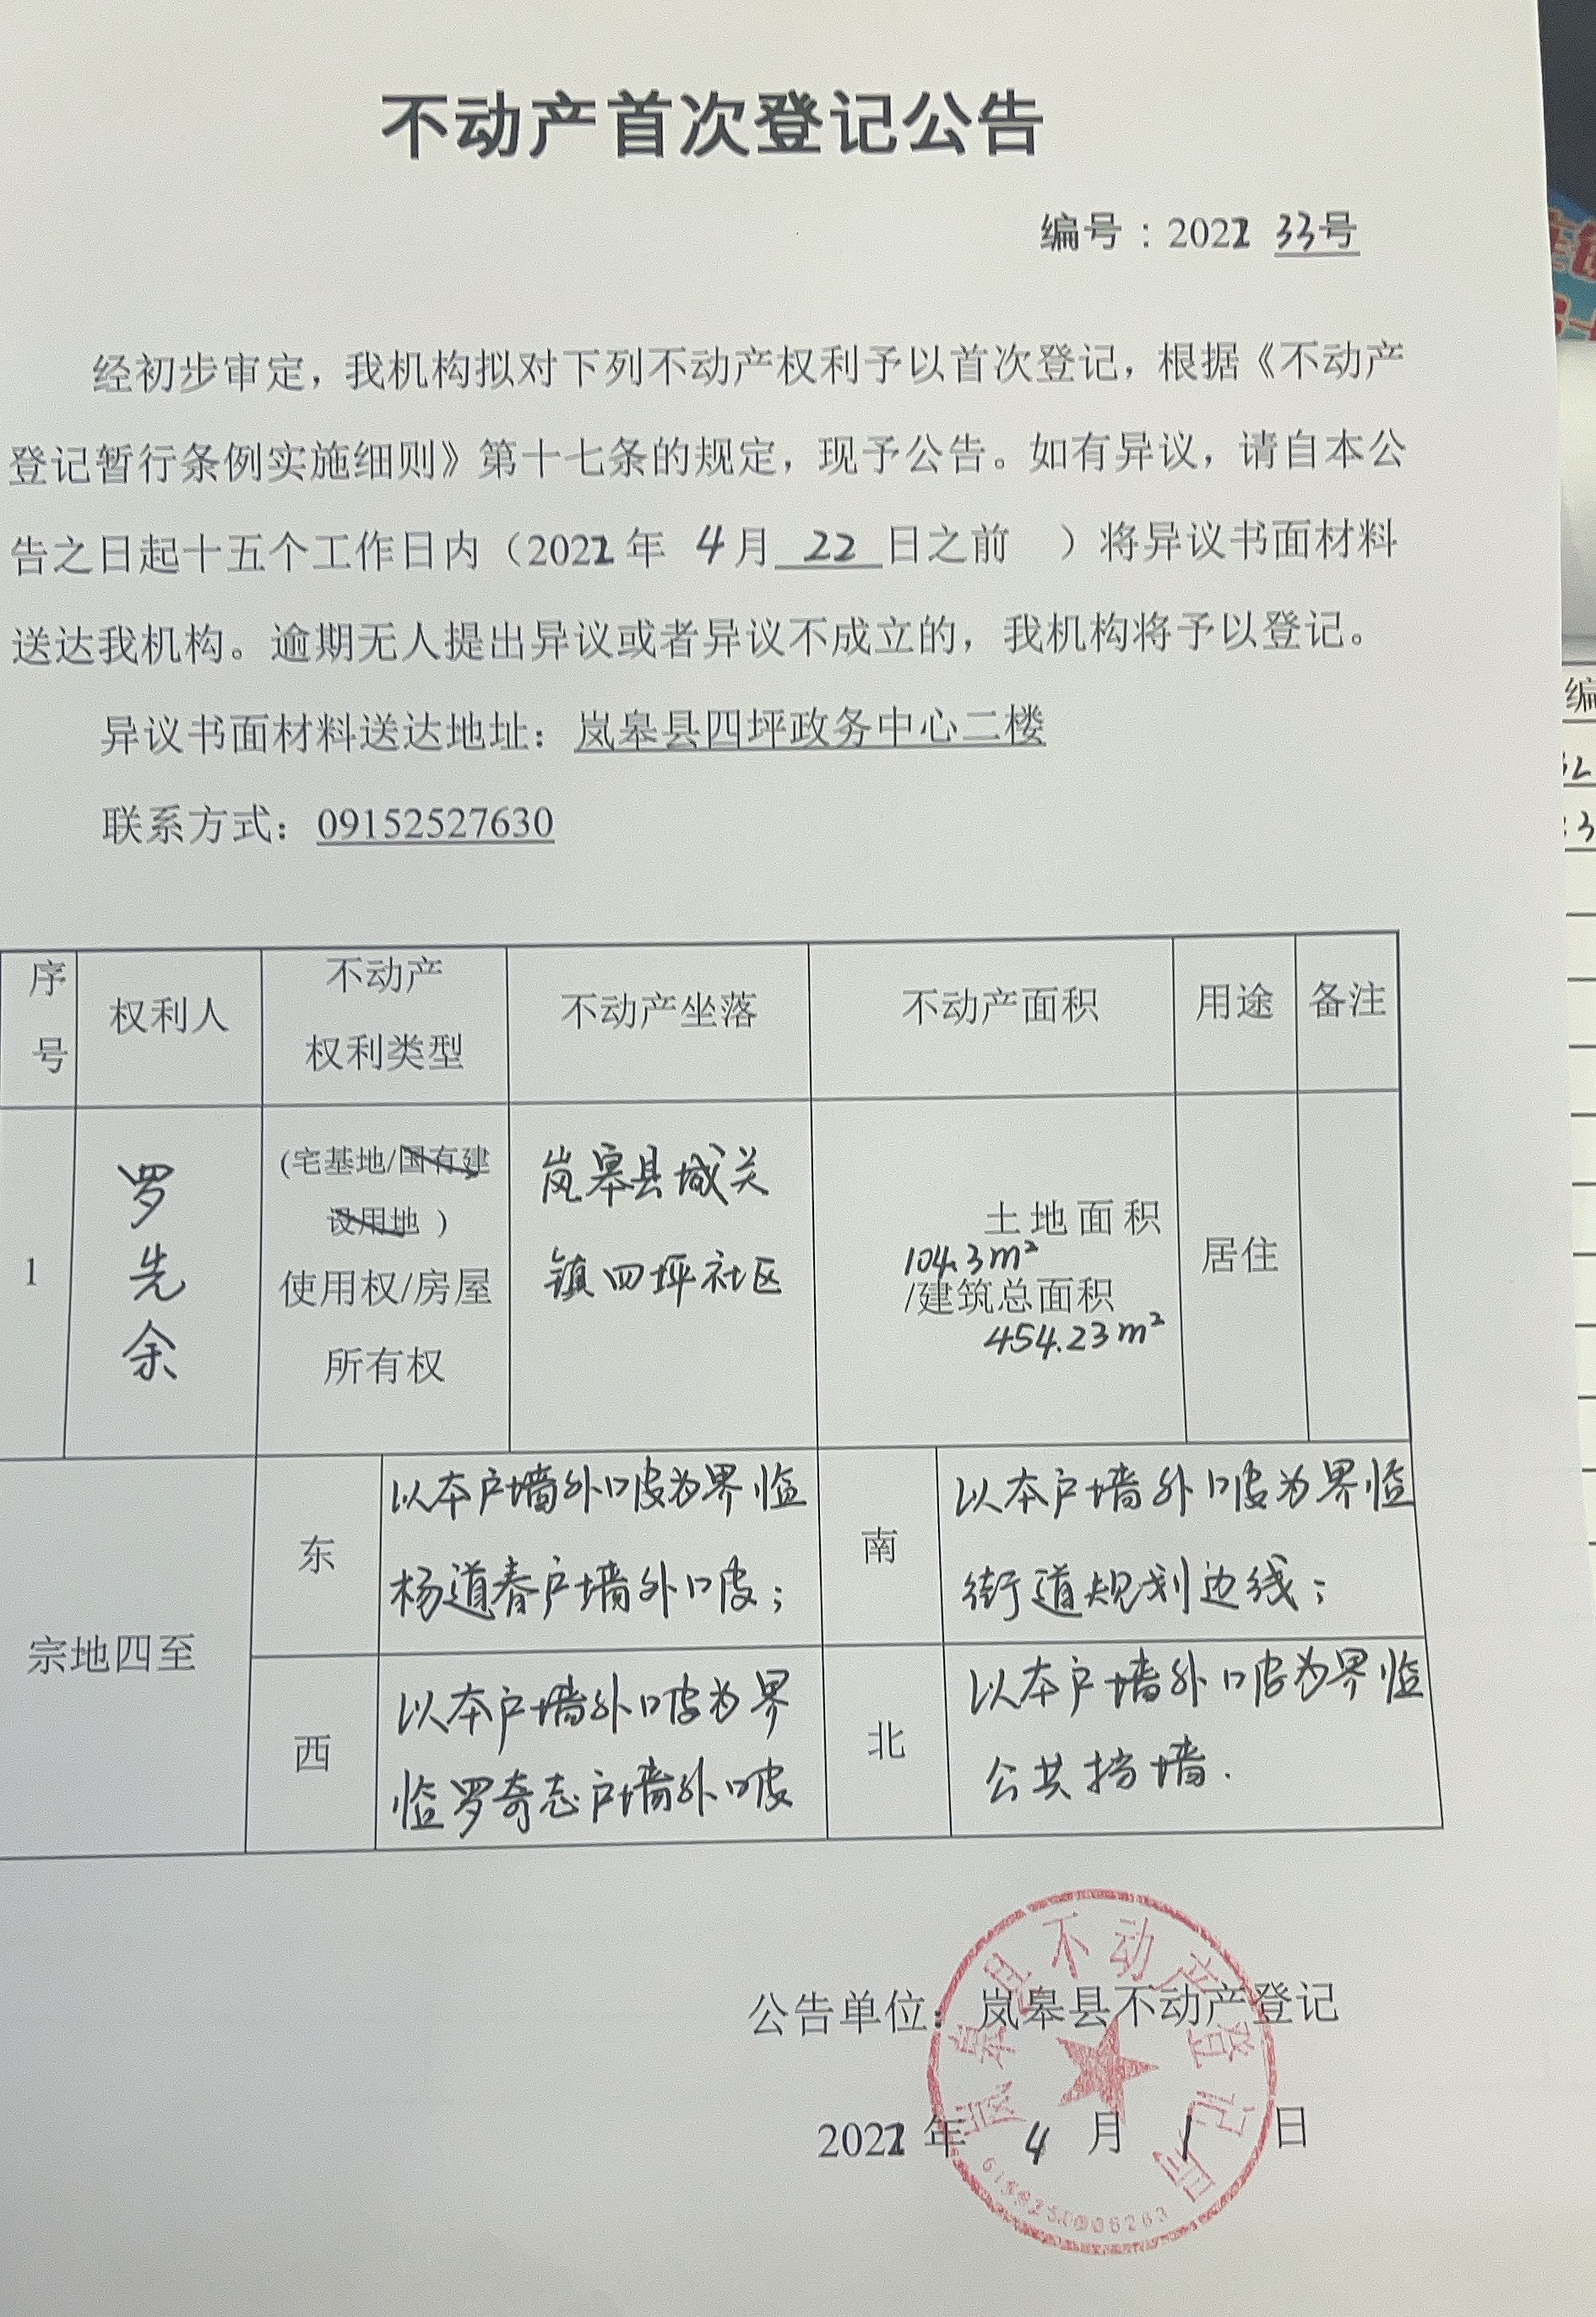 不动产首次登记公告
编号：2022 33号
经初步审定，我机构拟对下列不动产权利予以首次登记，根据《不动产
登记暂行条例实施细则》第十七条的规定，现予公告。如有异议，请自本公
告之日起十五个工作日内（2022年 4月 22 日之前 ）将异议书面材料
送达我机构。逾期无人提出异议或者异议不成立的，我机构将予以登记。
异议书面材料送达地址：岚皋县四坪政务中心二楼
联系方式：09152527630
序号 权利人 不动产权利类型 不动产坐落 不动产面积 用途 备注
1
罗先余
(宅基地/国有建
设用地 )
使用权/房屋
所有权
岚皋县城关
镇四坪社区
土地面积
104.3m²
/建筑总面积
454.23m²
居住
宗地四至
东
以本户墙外口皮为界临
杨道春户墙外口皮；
南
以本户墙外口皮为界临
街道规划边线；
西
以本户墙外口皮为界
临罗奇志户墙外口皮
北
以本户墙外口皮为界临
公共挡墙.
公告单位：岚皋县不动产登记
2022年 4 月 1 日
岚皋县不动产登记局
编